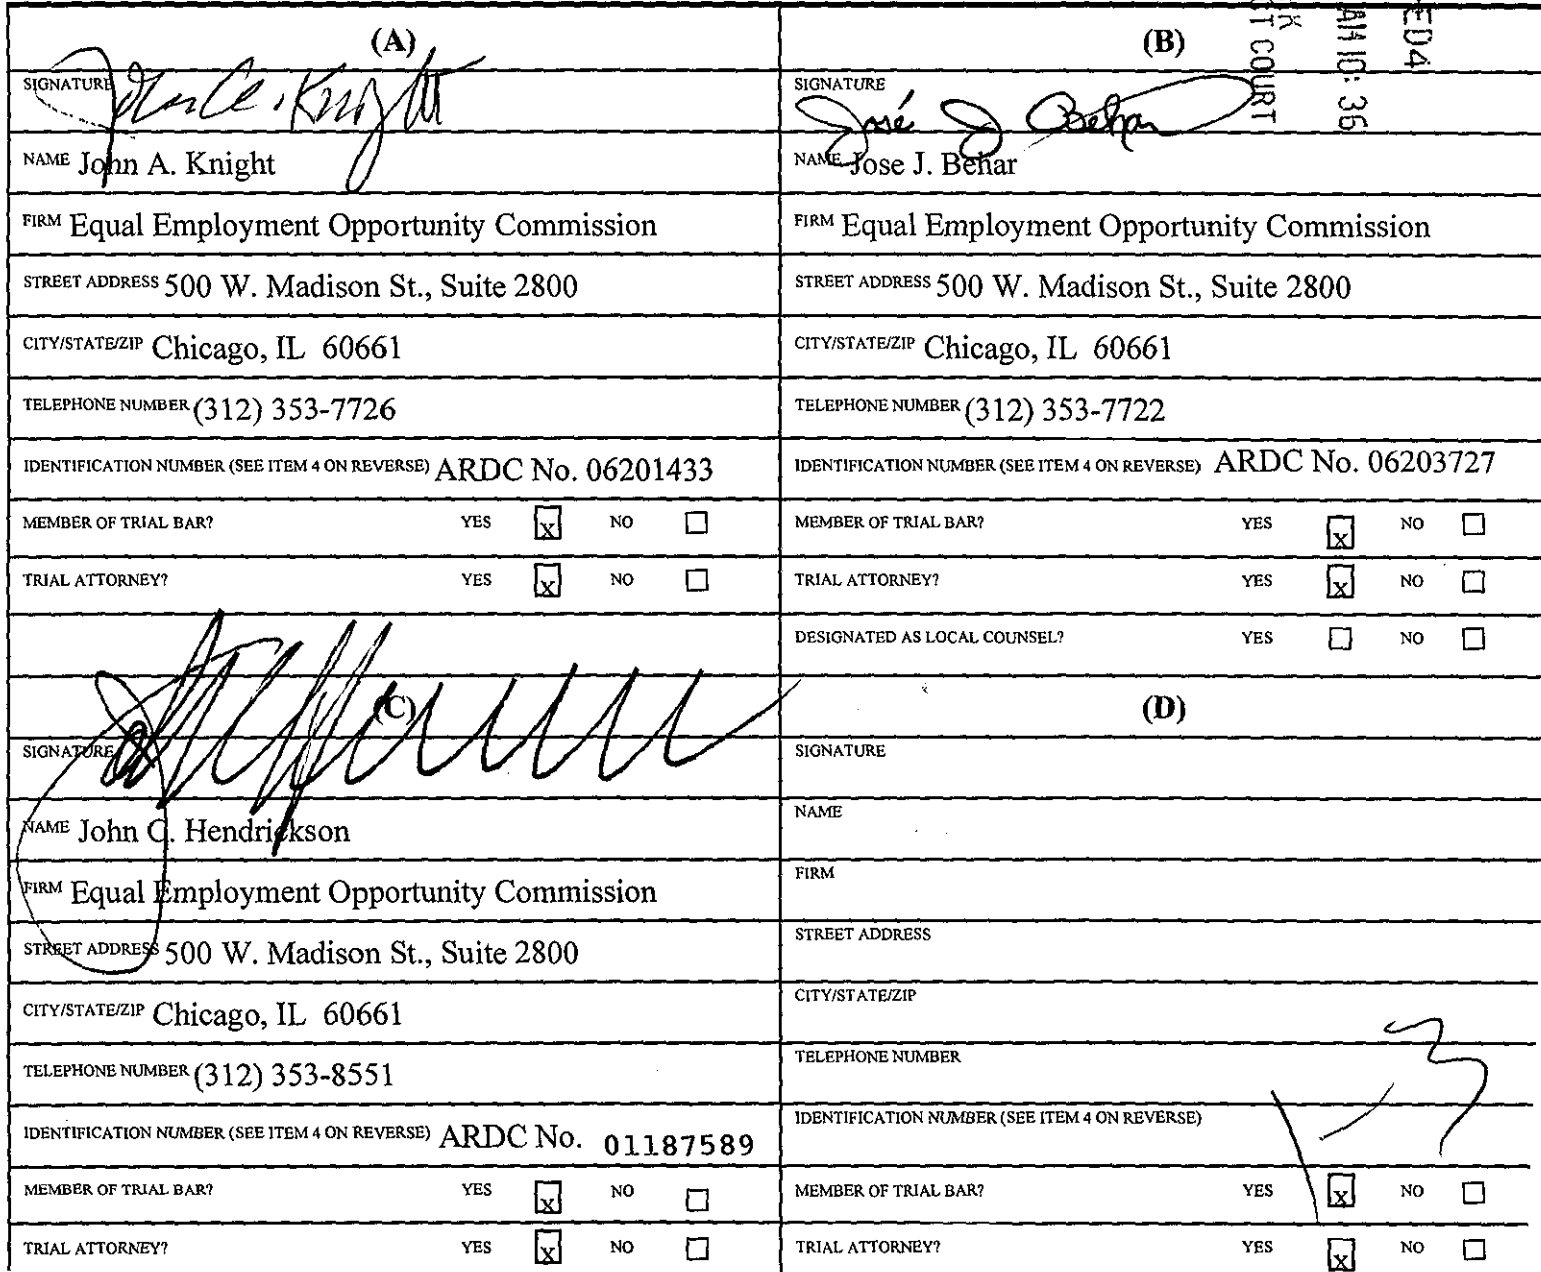 ED4
AM 10: 36
K
ST COURT
(A)
SIGNATURE John A. Knight
NAME John A. Knight
FIRM Equal Employment Opportunity Commission
STREET ADDRESS 500 W. Madison St., Suite 2800
CITY/STATE/ZIP Chicago, IL 60661
TELEPHONE NUMBER (312) 353-7726
IDENTIFICATION NUMBER (SEE ITEM 4 ON REVERSE) ARDC No. 06201433
MEMBER OF TRIAL BAR? YES x NO
TRIAL ATTORNEY? YES x NO
(B)
SIGNATURE José J Behar
NAME Jose J. Behar
FIRM Equal Employment Opportunity Commission
STREET ADDRESS 500 W. Madison St., Suite 2800
CITY/STATE/ZIP Chicago, IL 60661
TELEPHONE NUMBER (312) 353-7722
IDENTIFICATION NUMBER (SEE ITEM 4 ON REVERSE) ARDC No. 06203727
MEMBER OF TRIAL BAR? YES x NO
TRIAL ATTORNEY? YES x NO
DESIGNATED AS LOCAL COUNSEL? YES NO
(C)
SIGNATURE
NAME John C. Hendrickson
FIRM Equal Employment Opportunity Commission
STREET ADDRESS 500 W. Madison St., Suite 2800
CITY/STATE/ZIP Chicago, IL 60661
TELEPHONE NUMBER (312) 353-8551
IDENTIFICATION NUMBER (SEE ITEM 4 ON REVERSE) ARDC No. 01187589
MEMBER OF TRIAL BAR? YES x NO
TRIAL ATTORNEY? YES x NO
(D)
SIGNATURE
NAME
FIRM
STREET ADDRESS
CITY/STATE/ZIP
TELEPHONE NUMBER
IDENTIFICATION NUMBER (SEE ITEM 4 ON REVERSE)
1-3
MEMBER OF TRIAL BAR? YES x NO
TRIAL ATTORNEY? YES x NO